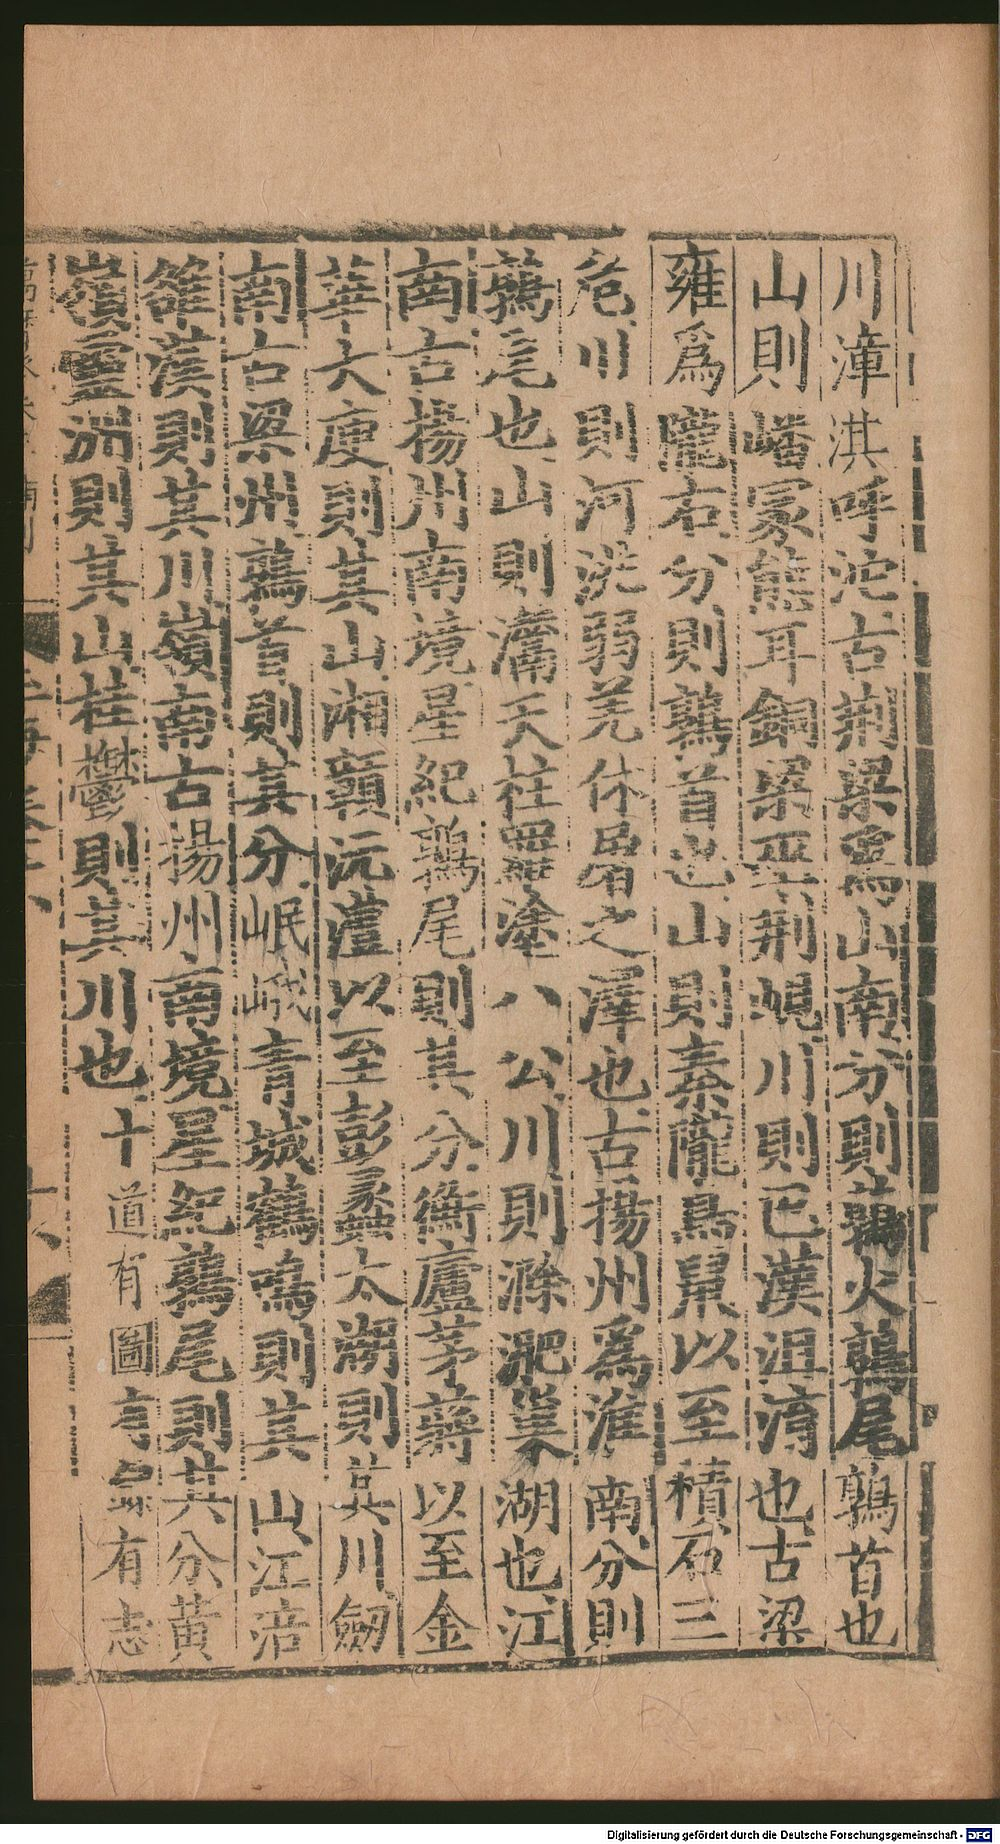 川漳淇呼沱古荆梁爲山南分則鶉火鶉尾鶉首也
山則嶓冢熊耳銅梁巫荆峴川則巴漢沮淯也古梁
雍爲隴右分則鶉首也山則秦隴鳥鼠以至積石三
危川則河洮弱羌休屠之澤也古揚州爲淮南分則
鶉尾也山則灊天柱羅塗八公川則滁淝巢湖也江
南古揚州南境星紀鶉尾則其分衡廬茅蔣以至金
華大庾則其山湘贑沅澧以至彭蠡太湖則其川劒
南古梁州鶉首則其分岷峨青城鶴鳴則其山江涪
雒漢則其川嶺南古揚州南境星紀鶉尾則其分黄
嶺靈洲則其山桂鬱則其川也十道有圖有志
Digitalisierung gefördert durch die Deutsche Forschungsgemeinschaft - DFG